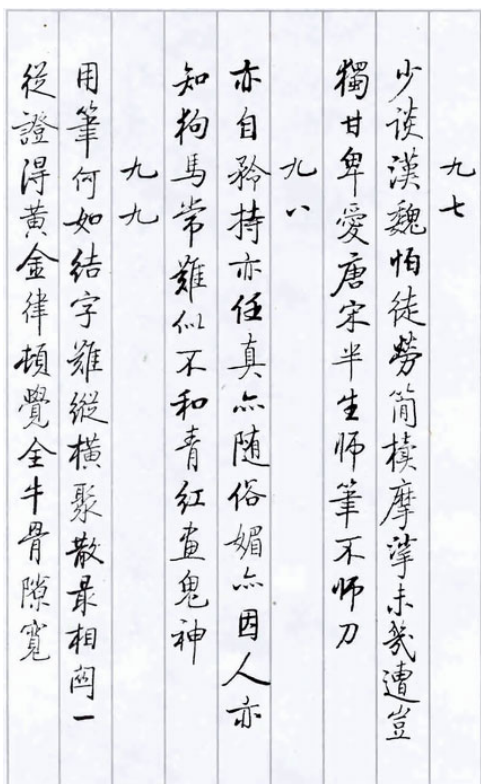 九七
少談漢魏怕徒勞簡櫝摩挲未幾遭豈
獨甘卑愛唐宋半生師筆不師刀
九八
亦自矜持亦任真亦随俗媚亦因人亦
知狗馬常難似不和青紅畫鬼神
九九
用筆何如結字難縱橫聚散最相関一
從證得黃金律頓覺全牛骨隙寬